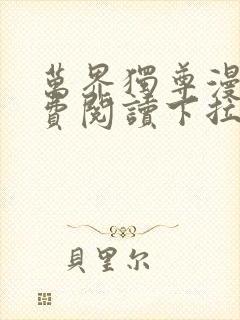 萬界獨尊漫
費閱讀下拉
貝里尔